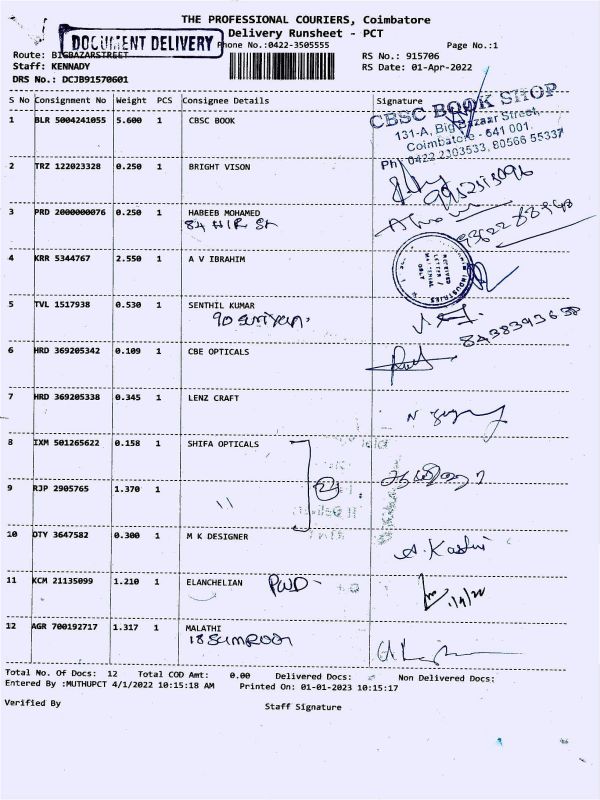 THE PROFESSIONAL COURIERS, Coimbatore
Delivery Runsheet - PCT
DOCUMENT DELIVERY
Phone No.:0422-3505555
Page No.:1
Route: BIGBAZARSTREET
RS No.: 915706
Staff: KENNADY
RS Date: 01-Apr-2022
DRS No.: DCJB91570601
S No Consignment No Weight PCS Consignee Details Signature
1 BLR 5004241055 5.600 1 CBSC BOOK
CBSC BOOK SHOP
131-A, Big Bazaar Street,
Coimbatore - 641 001.
Ph: 0422 2303533, 80566 55337
2 TRZ 122023328 0.250 1 BRIGHT VISON
3 PRD 2000000076 0.250 1 HABEEB MOHAMED
84 HIR St
4 KRR 5344767 2.550 1 A V IBRAHIM
INDUSTRIES
RECEIVED
LETTER /
MATERIAL
ONLY
5 TVL 1517938 0.530 1 SENTHIL KUMAR
8438393638
6 HRD 369205342 0.109 1 CBE OPTICALS
7 HRD 369205338 0.345 1 LENZ CRAFT
8 IXM 501265622 0.158 1 SHIFA OPTICALS
9 RJP 2905765 1.370 1 \\
2
10 DTY 3647582 0.300 1 M K DESIGNER
A. Kashi
11 KCM 21135099 1.210 1 ELANCHELIAN PWD -
1/4/22
12 AGR 700192717 1.317 1 MALATHI
Total No. Of Docs: 12 Total COD Amt: 0.00 Delivered Docs: Non Delivered Docs:
Entered By :MUTHUPCT 4/1/2022 10:15:18 AM Printed On: 01-01-2023 10:15:17
Verified By
Staff Signature